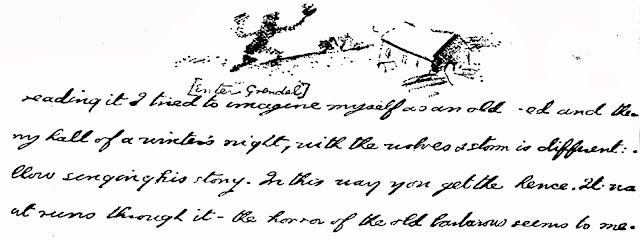 [enter Grendel]
reading it I tried to imagine myself as an old -ed and the
ny hall of a winter's night, with the wolves & storm is different:.
llow singing his story. In this way you get the hence. It wa
at runs through it - the horror of the old barbarous seems to me.